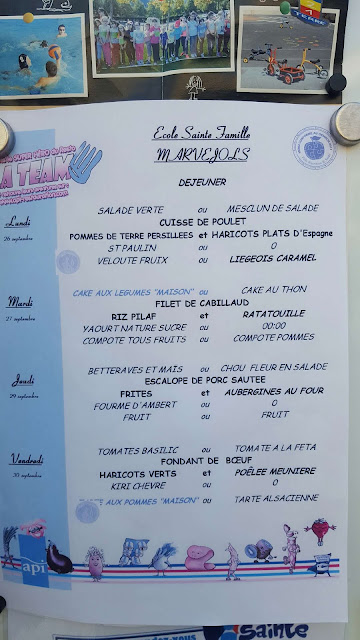 Ecole Sainte Famille
MARVEJOLS
A TEAM
DEJEUNER
Lundi
26 septembre
SALADE VERTE ou MESCLUN DE SALADE
CUISSE DE POULET
POMMES DE TERRE PERSILLEES et HARICOTS PLATS D'Espagne
ST PAULIN ou 0
VELOUTE FRUIX ou LIEGEOIS CARAMEL
Mardi
27 septembre
CAKE AUX LEGUMES "MAISON" ou CAKE AU THON
FILET DE CABILLAUD
RIZ PILAF et RATATOUILLE
YAOURT NATURE SUCRE ou 00:00
COMPOTE TOUS FRUITS ou COMPOTE POMMES
Jeudi
29 septembre
BETTERAVES ET MAIS ou CHOU FLEUR EN SALADE
ESCALOPE DE PORC SAUTEE
FRITES et AUBERGINES AU FOUR
FOURME D'AMBERT ou 0
FRUIT ou FRUIT
Vendredi
30 septembre
TOMATES BASILIC ou TOMATE A LA FETA
FONDANT DE BŒUF
HARICOTS VERTS et POÊLEE MEUNIERE
KIRI CHEVRE ou 0
AUX POMMES "MAISON" ou TARTE ALSACIENNE
api
Sainte